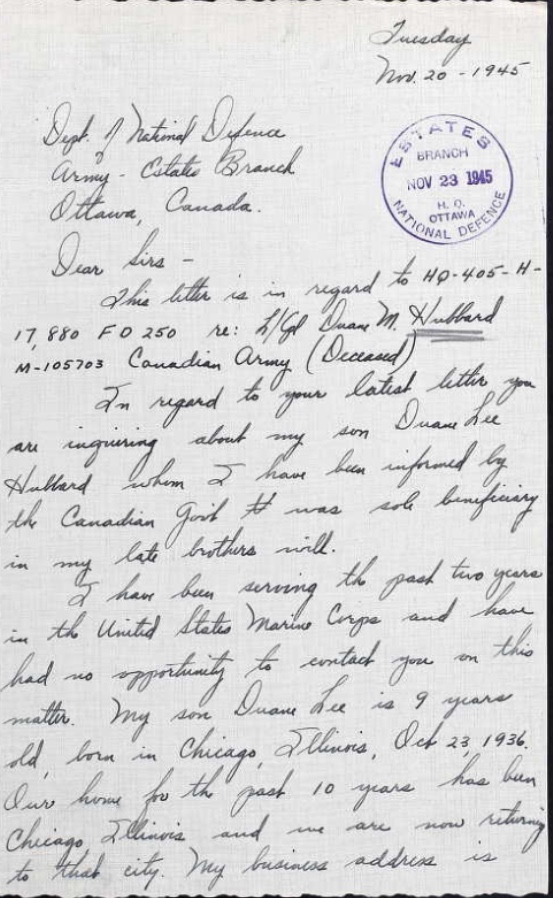 Tuesday
Nov. 20 - 1945
Dept. of National Defence
Army - Estates Branch
Ottawa, Canada.
ESTATES
BRANCH
NOV 23 1945
H. Q.
OTTAWA
NATIONAL DEFENCE
Dear Sirs -
This letter is in regard to HQ-405-H-
17,880 FD 250 re: L/Cpl Duane M. Hubbard
M-105703 Canadian Army (Deceased)
In regard to your latest letter you
are inquiring about my son Duane Lee
Hubbard whom I have been informed by
the Canadian Gov't was sole beneficiary
in my late brothers will.
I have been serving the past two years
in the United States Marine Corps and have
had no opportunity to contact you on this
matter. My son Duane Lee is 9 years
old, born in Chicago, Illinois, Oct 23, 1936.
Our home for the past 10 years has been
Chicago Illinois and we are now returning
to that city. My business address is